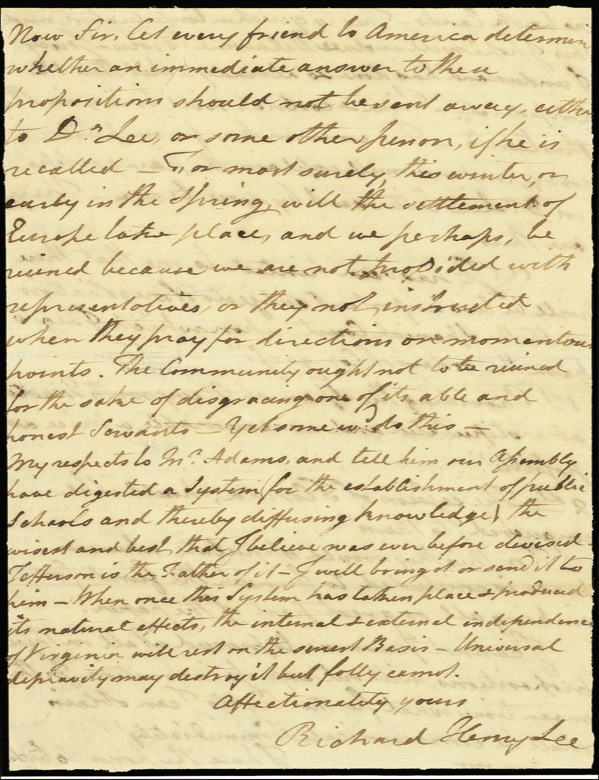 Now Sir, Let every friend to America determin
whether an immediate answer to these
propositions should not be sent away, eithe
to Dr. Lee, or some other person, if he is
recalled – For most surely, this winter, or
early in the Spring, will the settlement of
Europe take place, and we perhaps, be
ruined because we are not provided with
representatives, or they not instructed
when they pray for directions on momentous
points. The Community ought not to be ruined
for the sake of disgracing one of its able and
honest Servants – Yet some wd. do this –
My respects to Mr. Adams, and tell him our Assembly
have digested a System (for the establishment of public
Schools and thereby diffusing knowledge) the
wisest and best, that I believe was ever before devised –
Jefferson is the Father of it – I will bring it or send it to
him – When once this System has taken place & produced
its natural effects, the internal & external independence
of Virginia will rest on the surest Basis – Universal
depravity may destroy it but folly cannot.
Affectionately yours
Richard Henry Lee